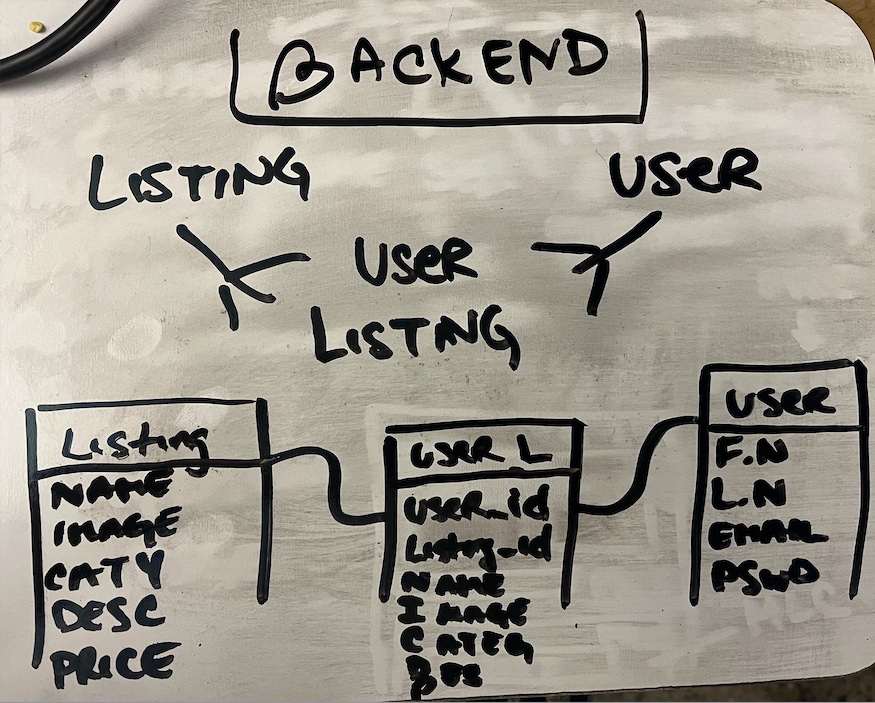 BACKEND
LISTING
USER
USER
LISTING
Listing
NAME
IMAGE
CATY
DESC
PRICE
USER L
USER_id
Listing_id
NAME
IMAGE
CATEG
USER
F.N
L.N
EMAIL
PSWD